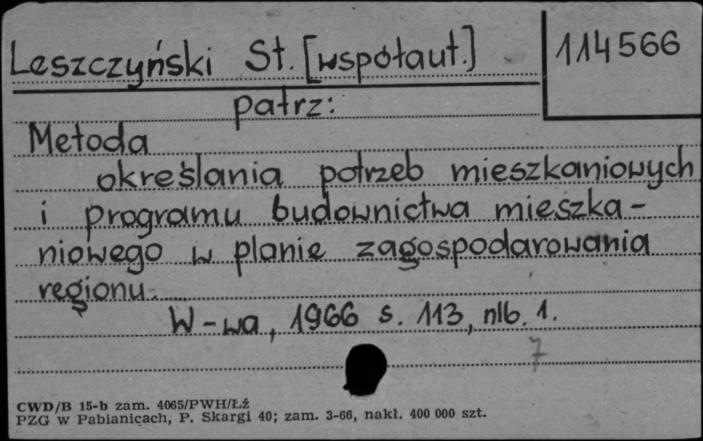 Leszczyński St. [współaut.] 114566
patrz:
Metoda
określania potrzeb mieszkaniowych
i programu budownictwa mieszka-
niowego w planie zagospodarowania
regionu.
W-wa, 1966 s. 113, nlb. 1.
7
CWD/B 15-b zam. 4065/PWH/Łź
PZG w Pabianicach, P. Skargi 40; zam. 3-66, nakł. 400 000 szt.